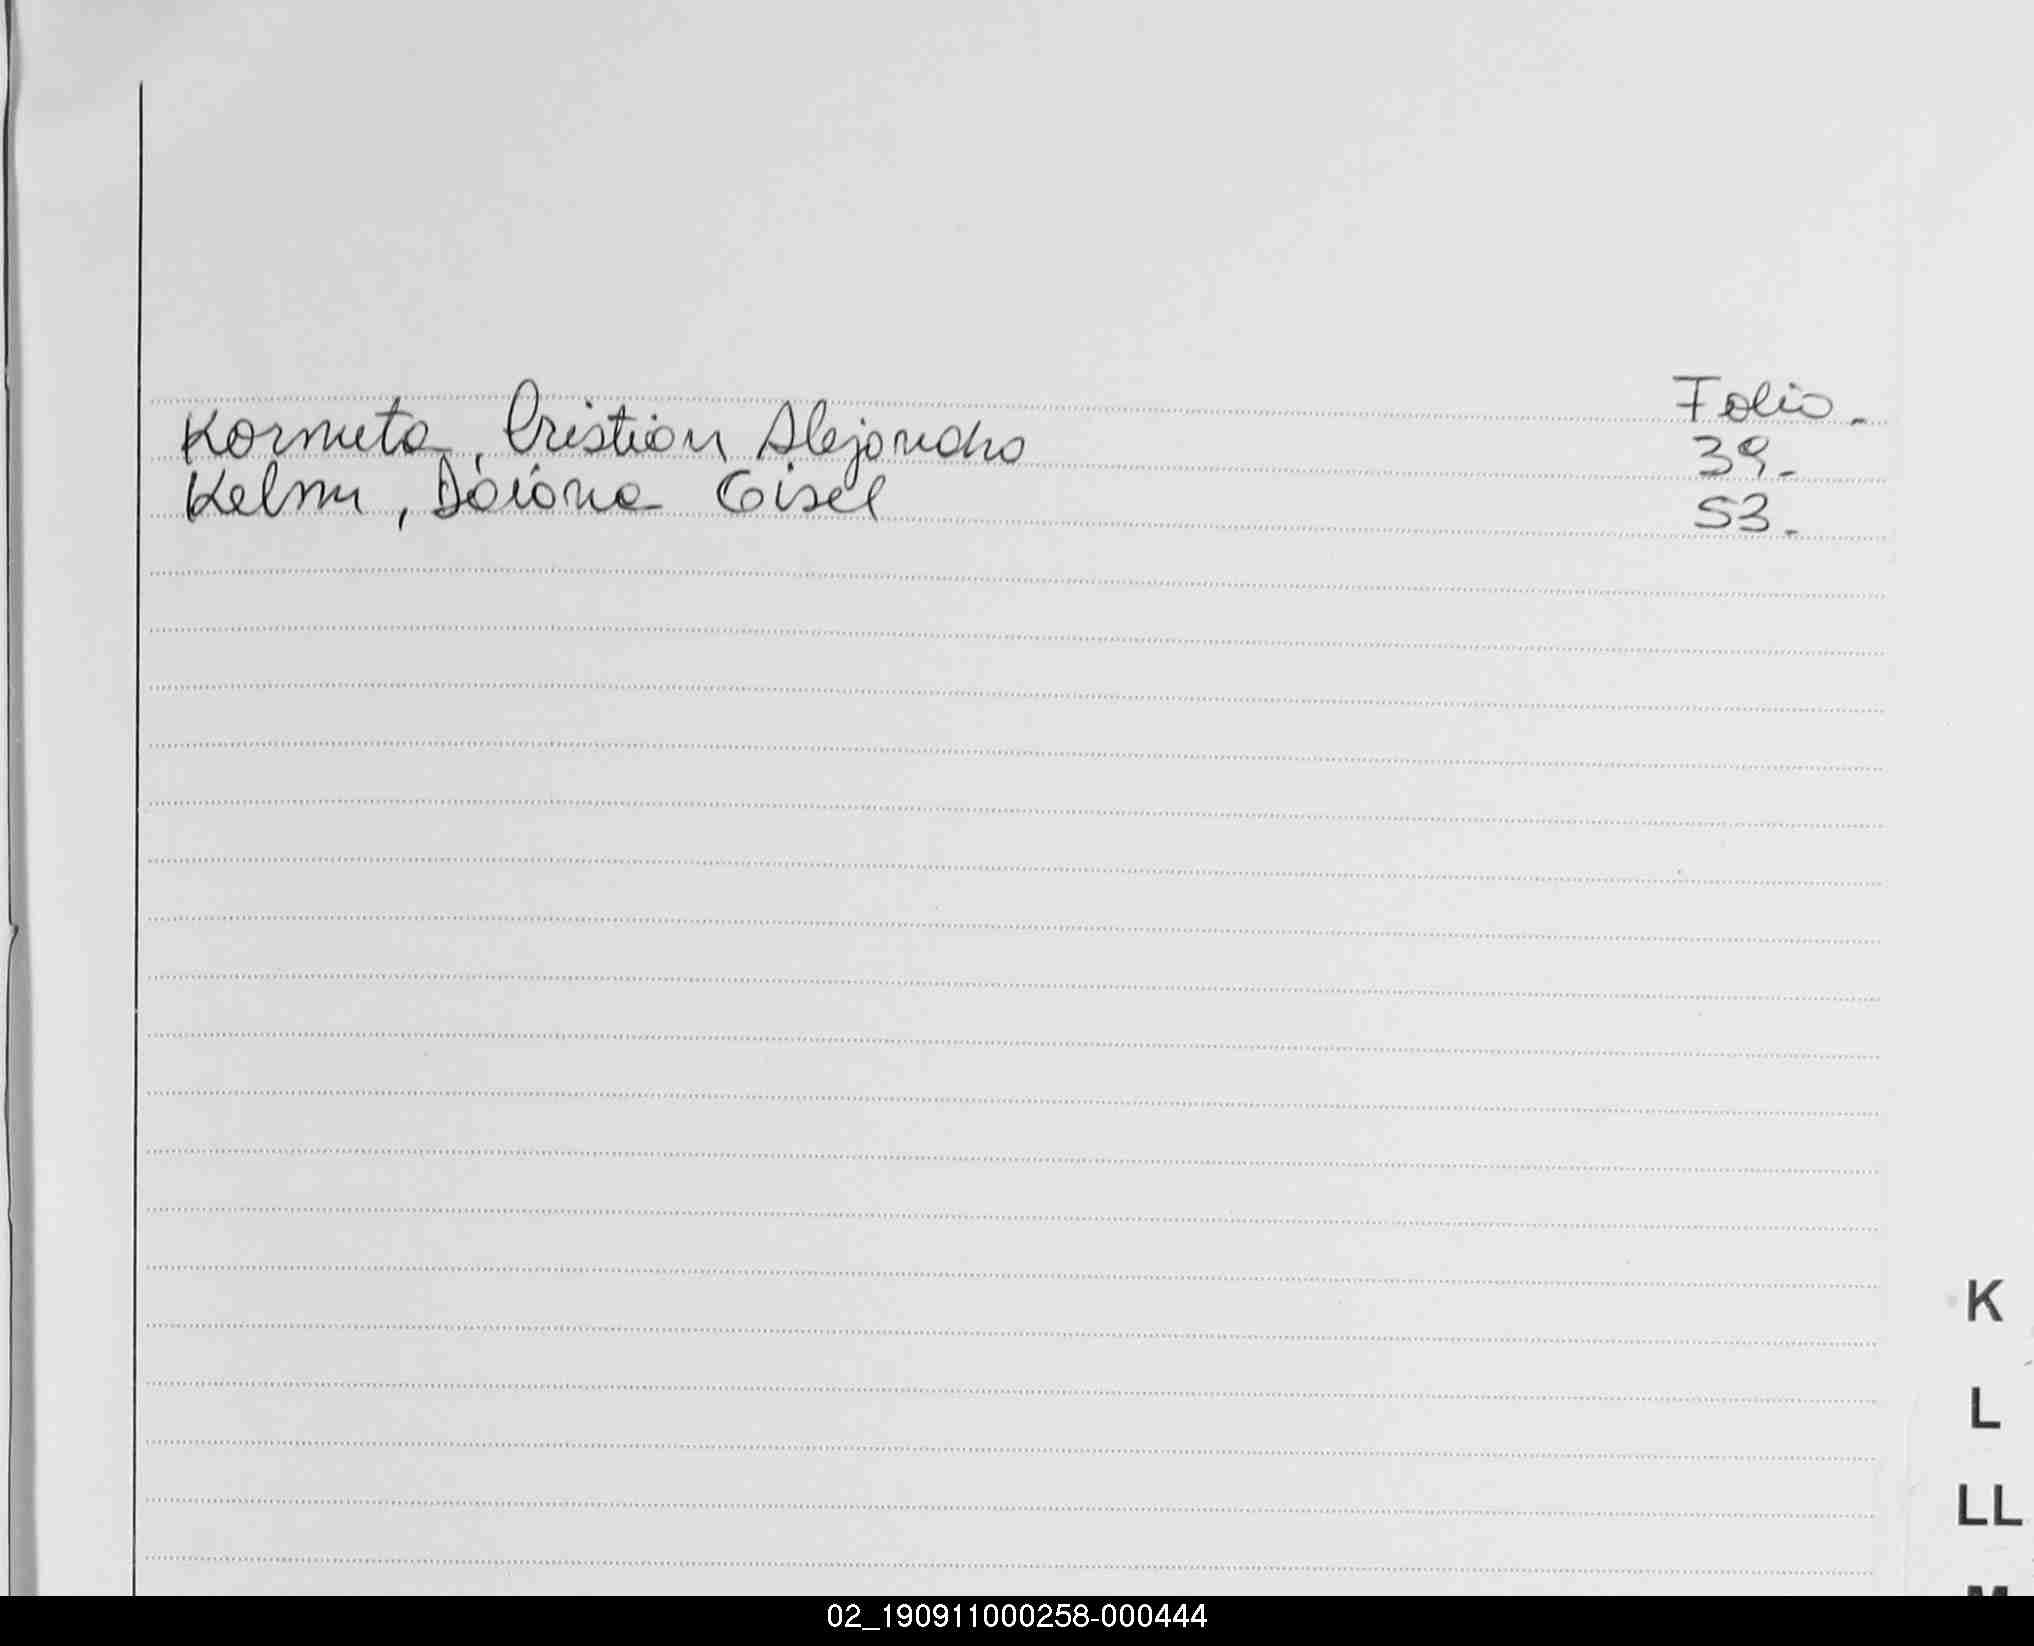 Folio.
Korneta, Cristian Alejandro 39.
Kelm, Daiana Gisel 53.
K
L
LL
M
02_190911000258-000444